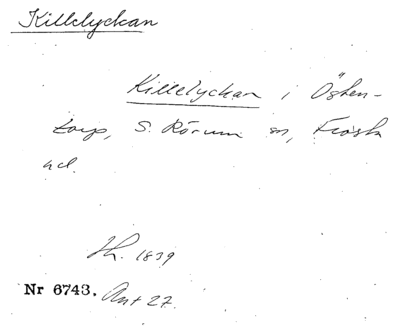 Killelyckan
Killelyckan i Östen-
torp, S. Rörum sn, Frosta
hd.
Th. 1839
Nr 6743. Ant 27.